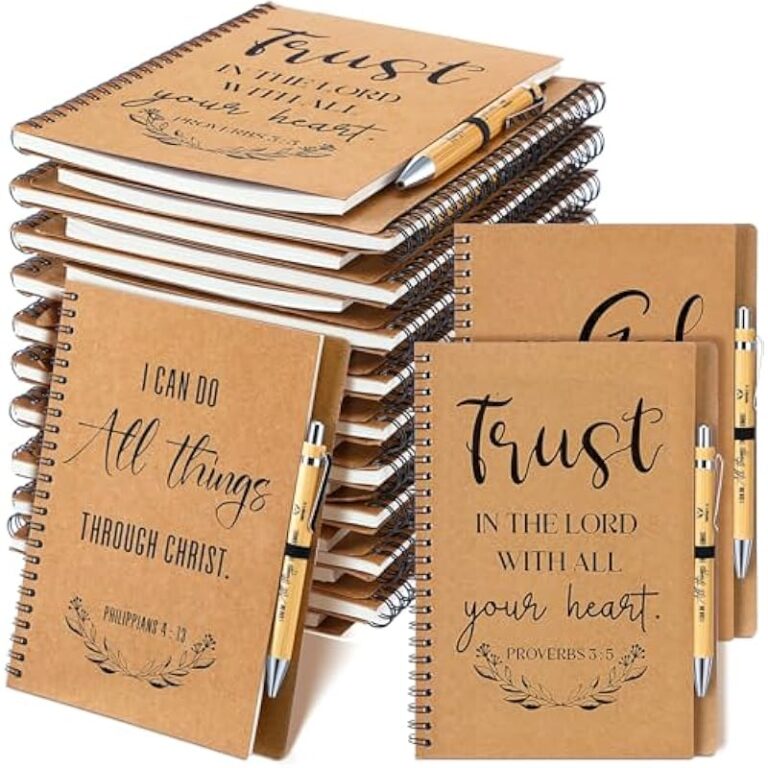 Trust
IN THE LORD
WITH ALL
your heart.
PROVERBS 3:5
I CAN DO
All things
THROUGH CHRIST.
PHILIPPIANS 4 : 13
God
Trust
IN THE LORD
WITH ALL
your heart.
PROVERBS 3:5